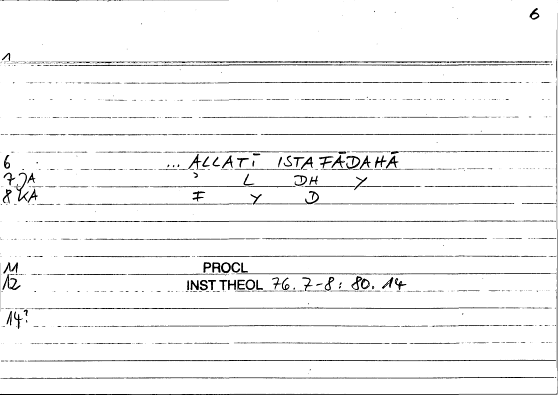 6
1
6 ... ALLATĪ ISTAFĀDAHĀ
7 JA ʾ L DH Y
8 KA F Y D
11 PROCL
12 INST THEOL 76.7-8 : 80.14
14?